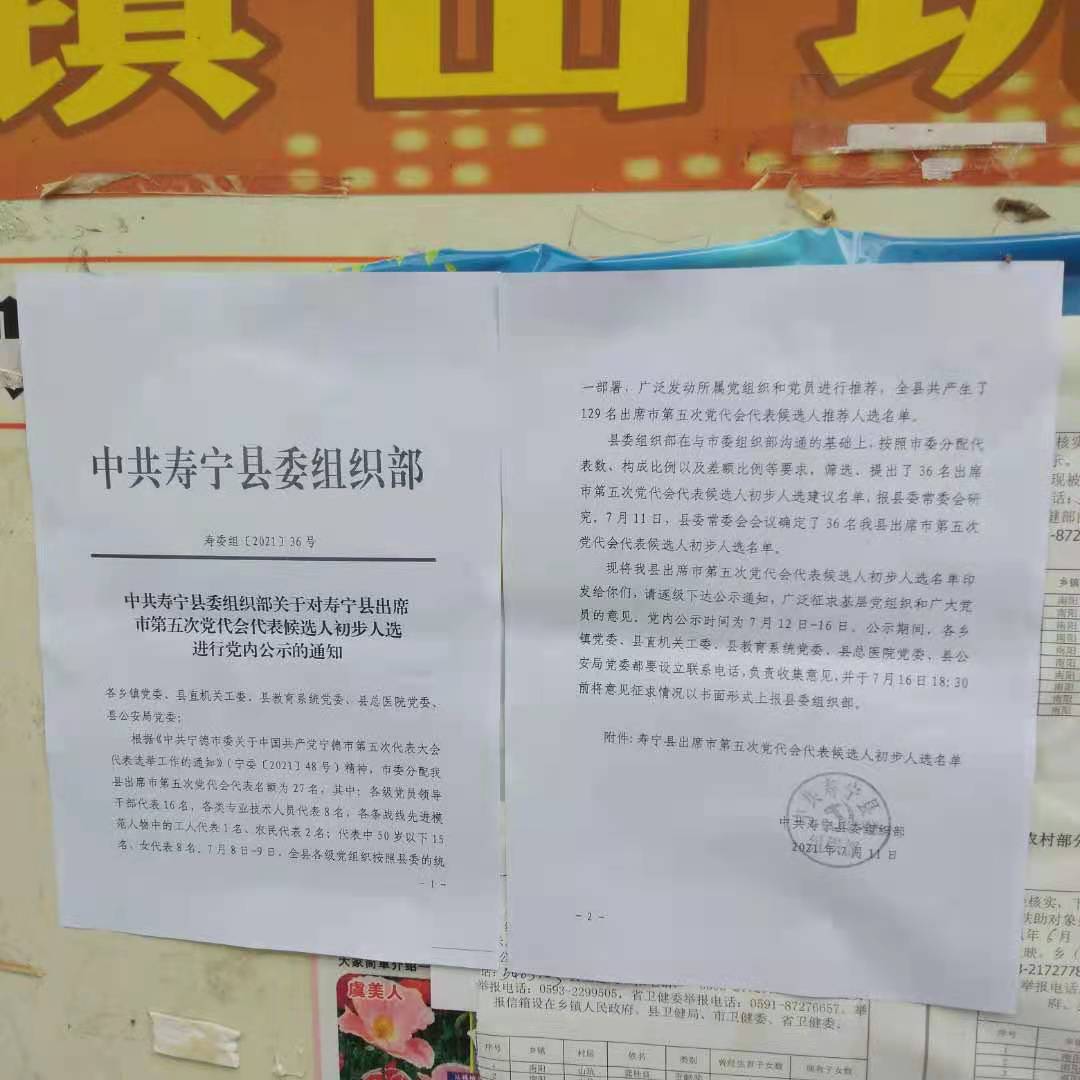 镇山坑
中共寿宁县委组织部
寿委组〔2021〕36号
中共寿宁县委组织部关于对寿宁县出席
市第五次党代会代表候选人初步人选
进行党内公示的通知
各乡镇党委、县直机关工委、县教育系统党委、县总医院党委、
县公安局党委：
根据《中共宁德市委关于中国共产党宁德市第五次代表大会
代表选举工作的通知》（宁委〔2021〕48号）精神，市委分配我
县出席市第五次党代会代表名额为27名，其中：各级党员领导
干部代表16名，各类专业技术人员代表8名，各条战线先进模
范人物中的工人代表1名、农民代表2名；代表中50岁以下15
名、女代表8名。7月8日-9日，全县各级党组织按照县委的统
- 1 -
一部署，广泛发动所属党组织和党员进行推荐，全县共产生了
129名出席市第五次党代会代表候选人推荐人选名单。
县委组织部在与市委组织部沟通的基础上，按照市委分配代
表数、构成比例以及差额比例等要求，筛选、提出了36名出席
市第五次党代会代表候选人初步人选建议名单，报县委常委会研
究。7月11日，县委常委会会议确定了36名我县出席市第五次
党代会代表候选人初步人选名单。
现将我县出席市第五次党代会代表候选人初步人选名单印
发给你们，请逐级下达公示通知，广泛征求基层党组织和广大党
员的意见。党内公示时间为7月12日-16日。公示期间，各乡
镇党委、县直机关工委、县教育系统党委、县总医院党委、县公
安局党委都要设立联系电话，负责收集意见，并于7月16日18:30
前将意见征求情况以书面形式上报县委组织部。
附件：寿宁县出席市第五次党代会代表候选人初步人选名单
中共寿宁县委组织部
2021年7月11日
- 2 -
大家简单介绍
虞美人
举报电话：0593-2299505，省卫健委举报电话：0591-87276657。举
报信箱设在乡镇人民政府、县卫健局、市卫健委、省卫健委。
序号 乡镇 村居 姓名 类别 曾经生育子女数 现有子女数
南阳 山坑
核实，
现被
-872
乡镇
南阳
南阳
南阳
南阳
南阳
南阳
南阳
南阳
南阳
农村部分
核实，下
扶助对象
年6月
映。乡（
3-2172778
府、
序号 乡镇
1